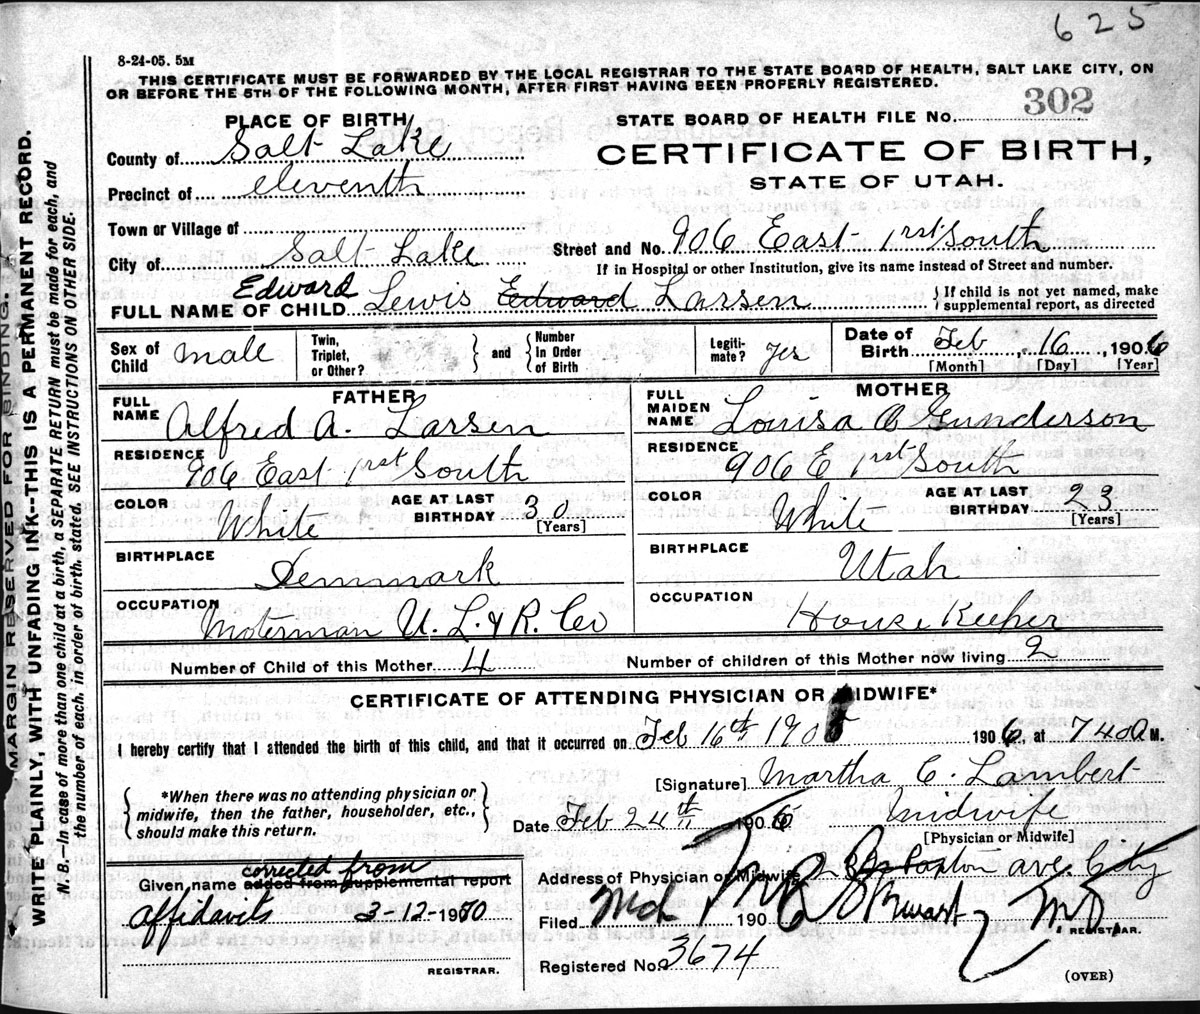 625
8-24-05. 5M
THIS CERTIFICATE MUST BE FORWARDED BY THE LOCAL REGISTRAR TO THE STATE BOARD OF HEALTH, SALT LAKE CITY, ON
OR BEFORE THE 5TH OF THE FOLLOWING MONTH, AFTER FIRST HAVING BEEN PROPERLY REGISTERED.
MARGIN RESERVED FOR BINDING.
WRITE PLAINLY, WITH UNFADING INK--THIS IS A PERMANENT RECORD.
N. B.—In case of more than one child at a birth, a SEPARATE RETURN must be made for each, and
the number of each, in order of birth, stated. SEE INSTRUCTIONS ON OTHER SIDE.
PLACE OF BIRTH
STATE BOARD OF HEALTH FILE No. 302
County of Salt Lake
CERTIFICATE OF BIRTH,
Precinct of eleventh
STATE OF UTAH.
Town or Village of
City of Salt Lake
Street and No. 906 East 1rst South
If in Hospital or other Institution, give its name instead of Street and number.
FULL NAME OF CHILD Edward Lewis Edward Larsen
If child is not yet named, make
supplemental report, as directed
Sex of Child male
Twin, Triplet, or Other?
and
Number In Order of Birth
Legiti-mate? yes
Date of Birth Feb 16, 1906
[Month] [Day] [Year]
FATHER
MOTHER
FULL NAME Alfred A. Larsen
FULL MAIDEN NAME Louisa Gunderson
RESIDENCE 906 East 1rst South
RESIDENCE 906 E 1rst South
COLOR White
AGE AT LAST BIRTHDAY 30 [Years]
COLOR White
AGE AT LAST BIRTHDAY 23 [Years]
BIRTHPLACE Denmark
BIRTHPLACE Utah
OCCUPATION Moterman U. L. & R. Co
OCCUPATION House Keeper
Number of Child of this Mother 4
Number of children of this Mother now living 2
CERTIFICATE OF ATTENDING PHYSICIAN OR MIDWIFE*
I hereby certify that I attended the birth of this child, and that it occurred on Feb 16th 190 1906, at 7 40 M.
[Signature] Martha C. Lambert
*When there was no attending physician or
midwife, then the father, householder, etc.,
should make this return.
Date Feb 24th 1906
midwife
[Physician or Midwife]
Given name added from supplemental report
corrected from
affidavits 3-12-1950
REGISTRAR.
Address of Physician or Midwife Paxton ave. City
Filed 190
M.D.
REGISTRAR.
Registered No. 3674
(OVER)